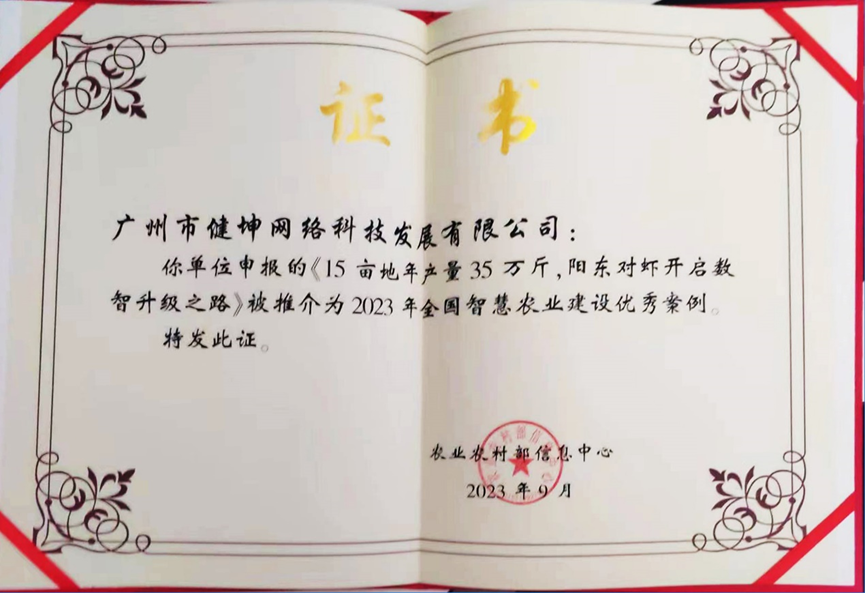 证书
广州市健坤网络科技发展有限公司：
你单位申报的《15 亩地年产量 35 万斤，阳东对虾开启数
智升级之路》被推介为 2023 年全国智慧农业建设优秀案例。
特发此证。
农业农村部信息中心
2023 年 9 月